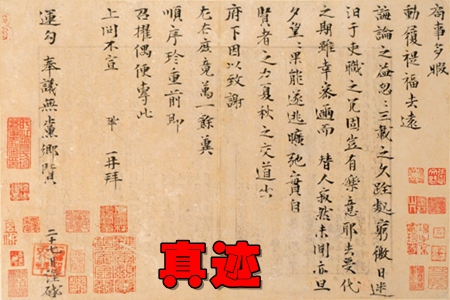 局事多暇
動履禔福去遠
誨論之益忽〻三載之久跧處窮徼日迷
汩于吏職之冗固豈有樂意耶去受代
之期雖幸密邇而替人寂然未聞亦旦
夕望〻果能遂逃曠弛實自
賢者之力夏秋之交道出
府下因以致謝
左右庶竟萬一餘冀
順序珍重前即
召擢偶便專此
上問不宣 鞏 再拜
運勾奉議無黨鄉賢
二十七日謹啓
真迹